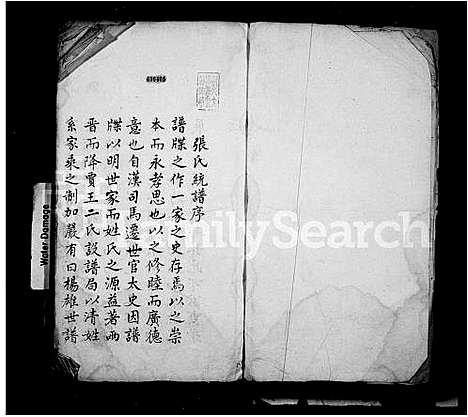 張氏統譜序
譜牒之作一家之史存焉以之崇
本而永孝思也以之修睦而廣德
意也自漢司馬遷世官太史因譜
牒以明世家而姓氏之源益著兩
晉而降賈王二氏設譜局以清姓
系家乘之制加嚴有曰楊雄世譜
Water Damage
FamilySearch